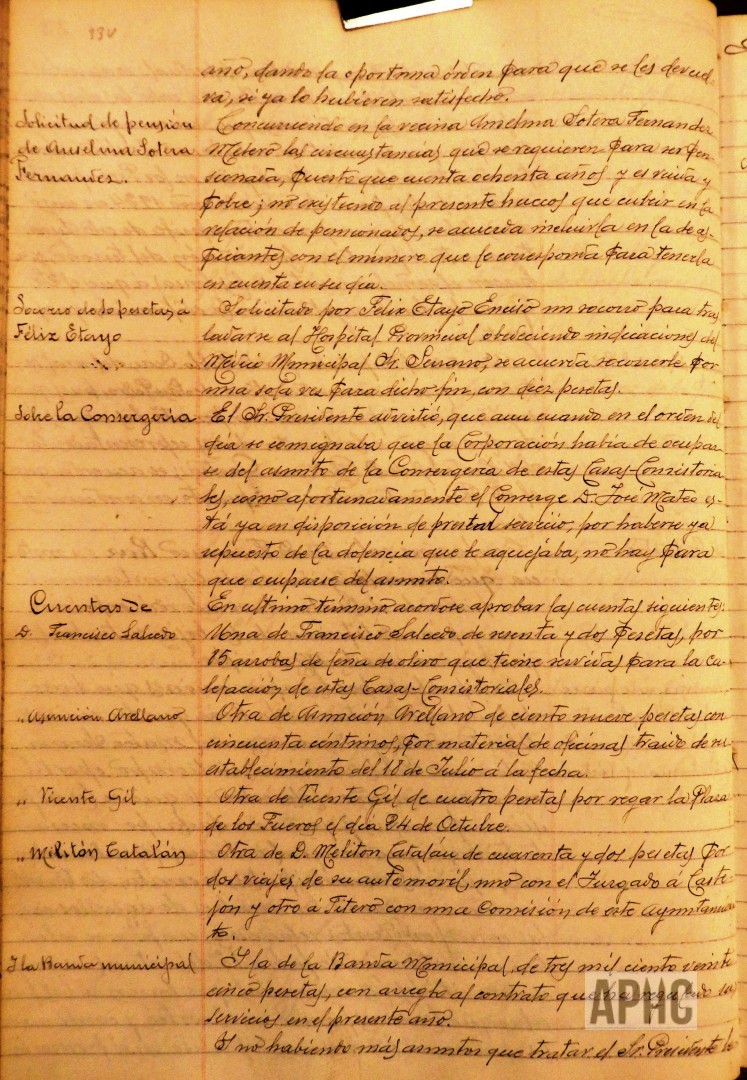 134
año, dando la oportuna órden para que se les devuel
va, si ya lo hubieren satisfecho.
Solicitud de pensión
de Anselma Sotera
Fernandez.
Concurriendo en la vecina Anselma Sotera Fernandez
Mesero las circunstancias que se requieren para ser pen
sionada, puesto que cuenta ochenta años y es viuda y
pobre; no existiendo al presente huecos que cubrir en la
relación de pensionados, se acuerda incluirla en la de as-
pirantes con el número que le corresponda para tenerla
en cuenta en su día.
Socorro de 10 pesetas á
Félix Etayo
Solicitado por Félix Etayo Enciso un socorro para tras
ladarse al Hospital Provincial obedeciendo indicaciones del
Médico Municipal Sr. Serrano, se acuerda socorrerle por
una sola vez para dicho fin, con diez pesetas.
Sobre la Consergería
El Sr. Presidente advirtió, que aun cuando en el orden del
día se consignaba que la Corporación había de ocupar
se del asunto de la Consergería de estas Casas-Consistoria
les, como afortunadamente el Converge D. José Mateo es-
tá ya en disposición de prestar servicio, por haberse ya
repuesto de la dolencia que le aquejaba, no hay para
que ocuparse del asunto.
Cuentas de
D. Francisco Salcedo
En ultimo término acordóse aprobar las cuentas siguientes:
Una de Francisco Salcedo de sesenta y dos pesetas, por
arrobas de leña de olivo que tiene servidas para la ca
lefacción de estas Casas-Consistoriales.
„ Asunción Arellano
Otra de Asunción Arellano de ciento nueve pesetas con
cincuenta céntimos, por material de oficinas traido de su
establecimiento del 18 de Julio á la fecha.
„ Vicente Gil
Otra de Vicente Gil de cuatro pesetas por regar la Plaza
de los Fueros el día 24 de Octubre.
„ Melitón Catalán
Otra de D. Méliton Catalán de cuarenta y dos pesetas por
dos viajes de su automovil, uno con el Juzgado á Caste-
jón y otro á Fitero con una Comisión de este Ayuntamien
to.
Y la Banda municipal
Y la de la Banda Municipal, de tres mil ciento veinte
cinco pesetas, con arreglo al contrato que ha regulado su
servicios en el presente año.
Y no habiendo más asuntos que tratar el Sr. Presidente le
APHC